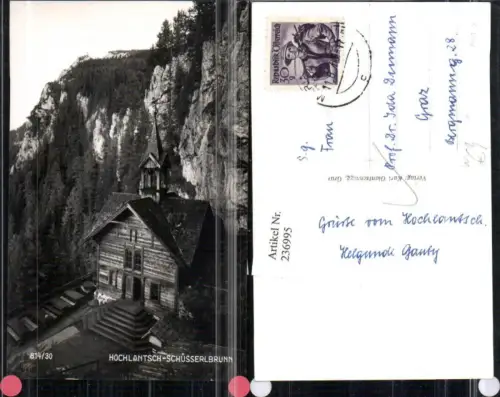 834/30
HOCHLANTSCH-SCHÜSSERLBRUNN
Republik Österreich
S.g.
Frau
Prof. Dr. Ida
Graz
Bergmanng. 28
Verlag Karl Graz
Artikel Nr.
236995
Grüsse vom Hochlantsch.
Helgunde